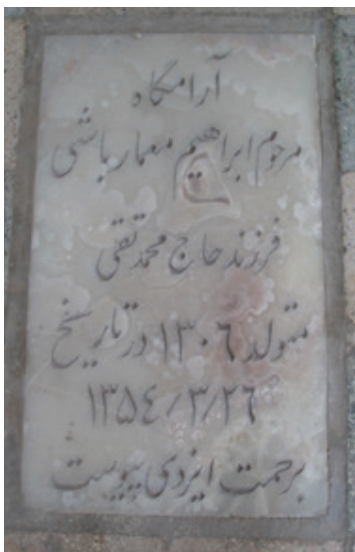 آرامگاه
مرحوم ابراهیم معمارباشی
فرزند حاج محمدتقی
متولد ۱۳۰۶ در تاریخ
۱۳۵۴/۳/۲۶
برحمت ایزدی پیوست